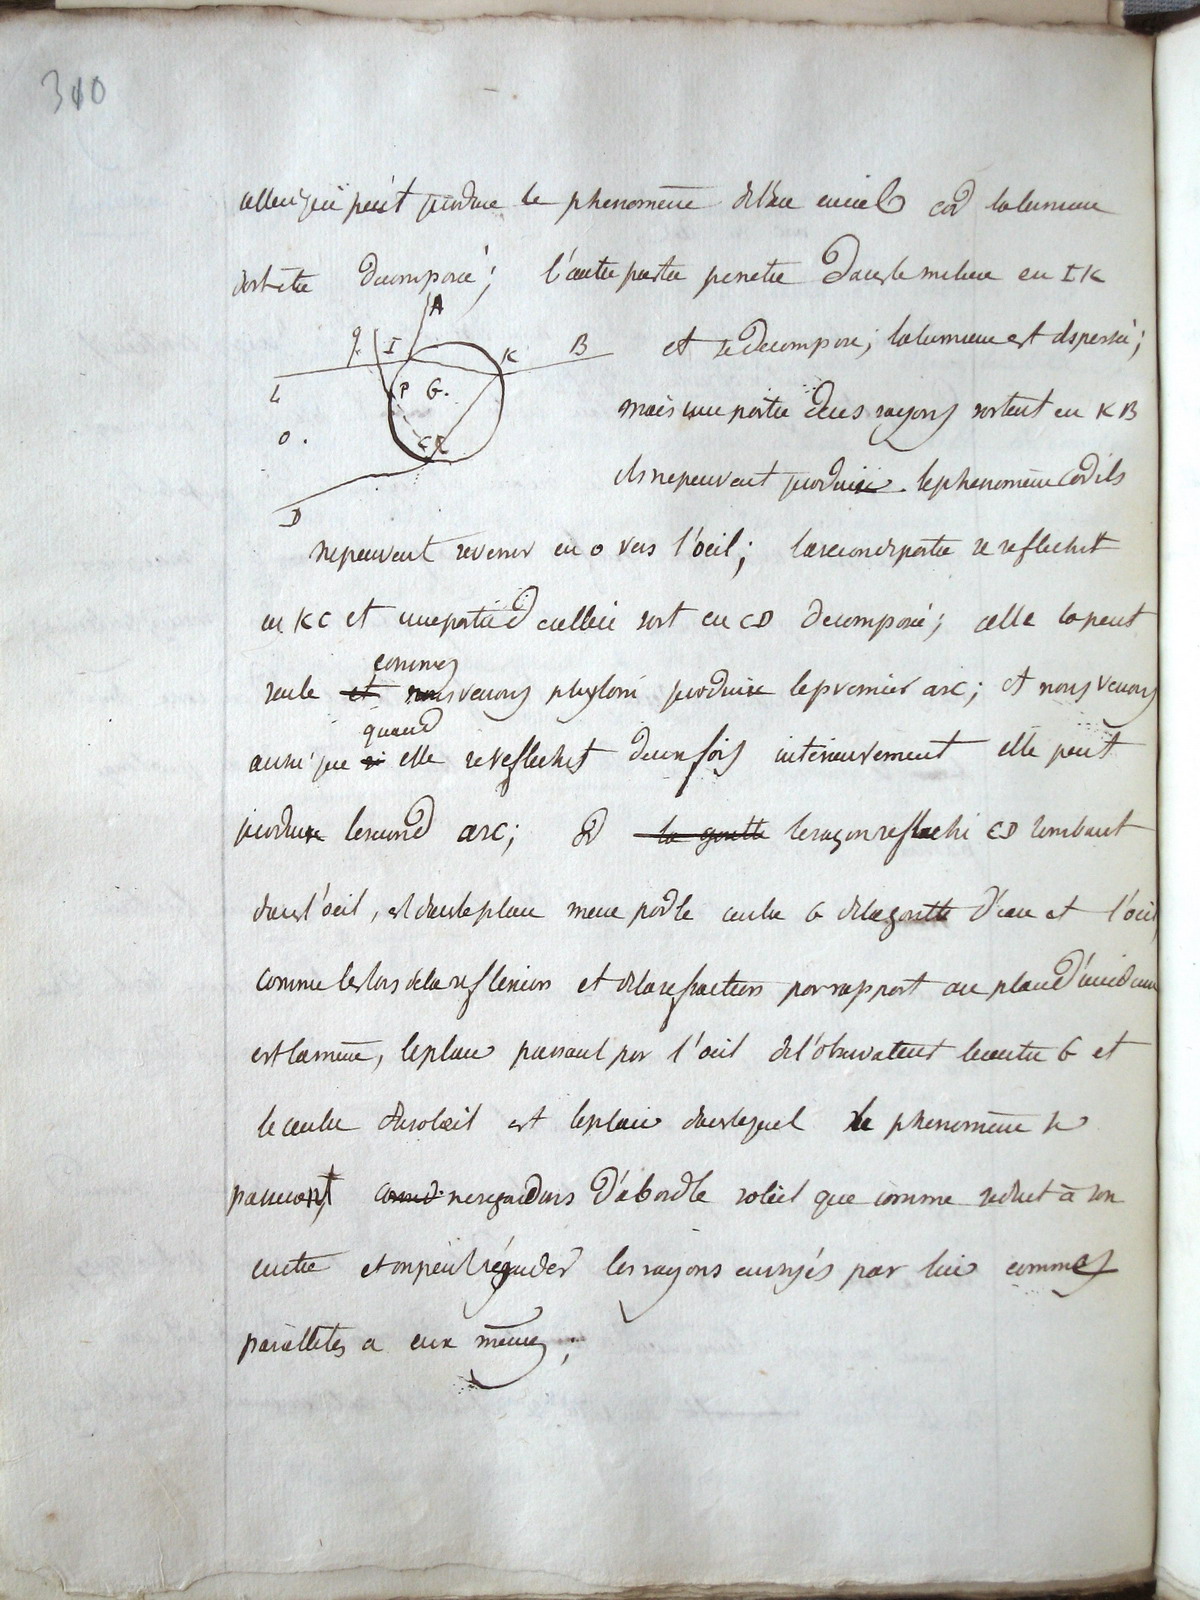 310
celleci qui peut produire le phenomène de l'arc en ciel car la lumiere
doit etre decomposé; l'autre partie penetre dans le milieu en IK
A
q I K B
et se decompose; la lumiere est dispersée;
L P G.
mais une partie de ces rayons sortent en KB
O. C
ils ne peuvent produire le phenomène car ils
D
ne peuvent revenir en o vers l'oeil; la seconde partie se reflechit
en KC et une partie de celleci sort en CD decomposé; celle la peut
comme
seule et nous verrons plus loin produire le premier arc; et nous verrons
quand
aussi que si elle se reflechit deux fois interieurement elle peut
produire le second arc; la goutte le rayon reflechi CD tombant
dans l'oeil, est dans le plan mene par le centre G de la goutte d'eau et l'oeil
comme les lois de la reflexion et de la refraction par rapport au plan d'incidence
est la meme, le plan passant par l'oeil de l'observateur le centre G et
le centre du soleil est le plan dans lequel le phenomène se
passe ne regardons d'abord le soleil que comme reduit à son
centre et on peut regarder les rayons envoyés par lui comme
paralleles a eux mêmes;